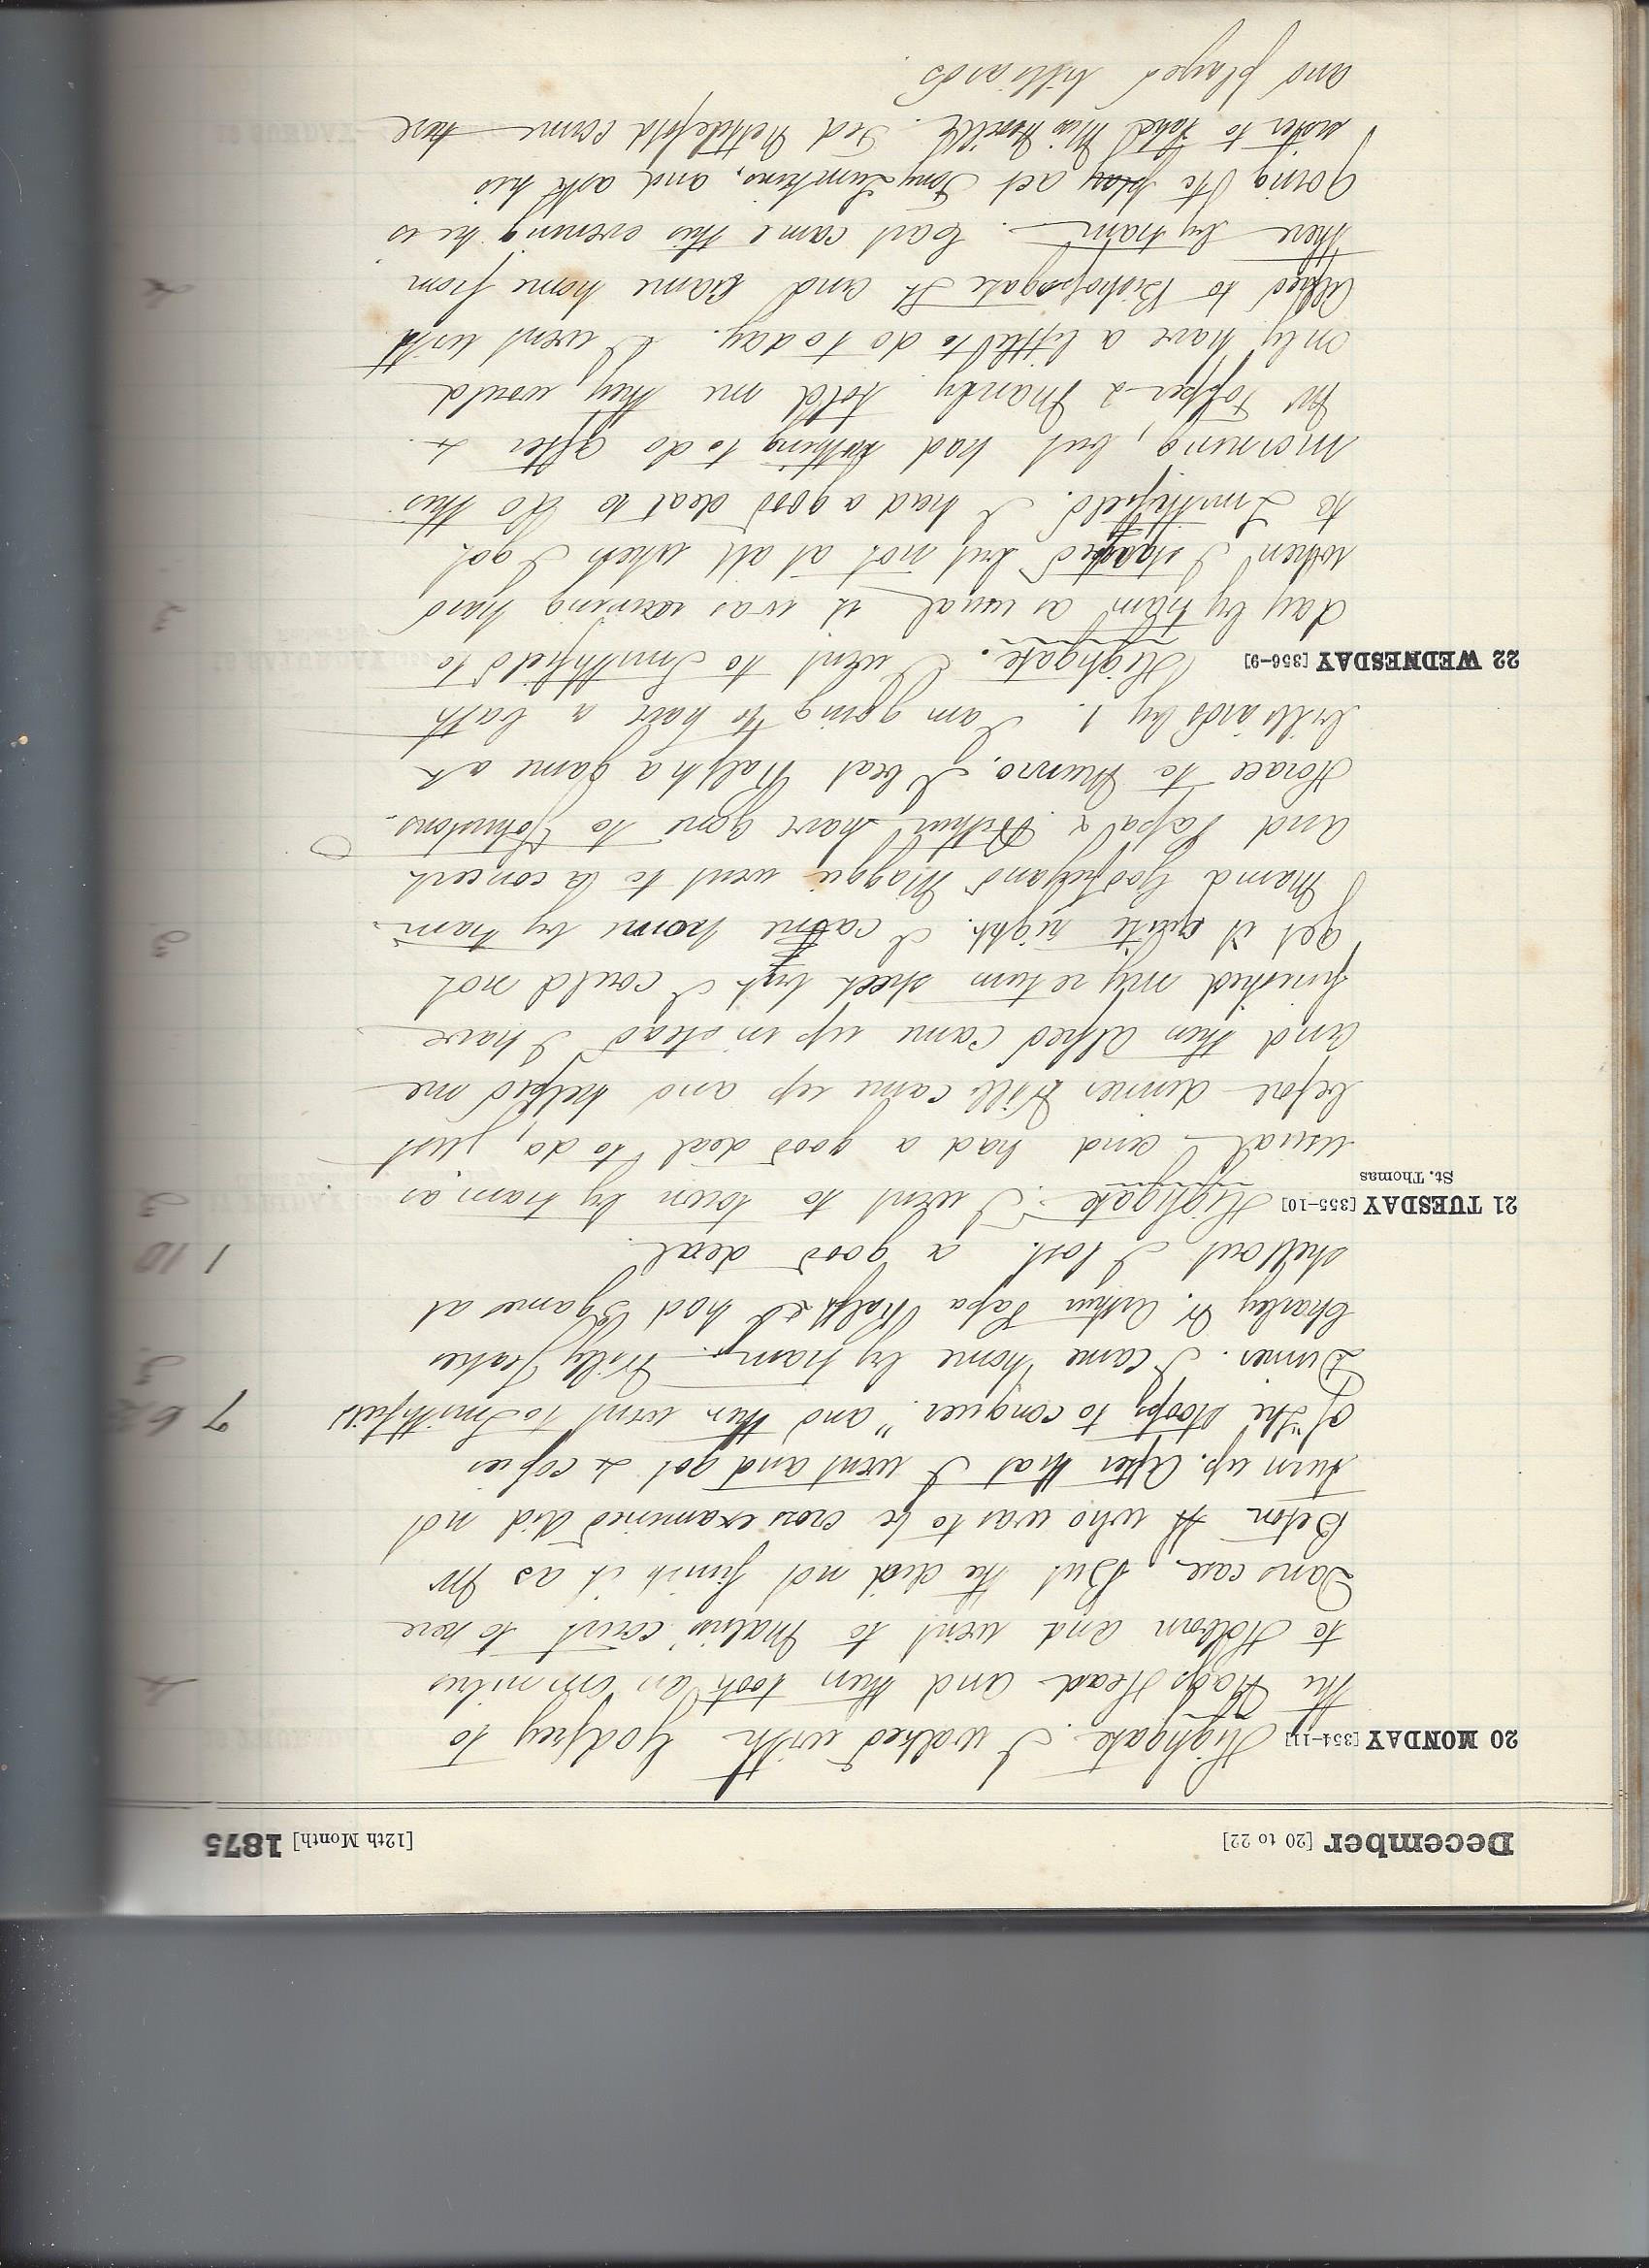 December [20 to 22] [12th Month] 1875
20 MONDAY [354-11] Highgate. I walked with Godfrey to
the Nags Head and then took an omnibus
to Holborn and went to Malins' court to here
Dans case, But the did not finish it as Mr
Beton who was to be cross examined did not
turn up. After that I went and got 2 copies
of "She stoops to conquer." and then went to Smithfield 7 6
Dinner. I came home by tram. Willy Jeakes 3
Charley W. Arthur Papa Ralph & I had 3 games at
shell out I lost. a good deal. 1 10
21 TUESDAY [355-10] Highgate. I went to town by tram as 3
St. Thomas
usual and had a good deal to do, just
before dinner Will came up and helped me
and then Alfred came up instead I have
finished my return sheet but I could not
get it quite right. I came home by tram. 3
Mama Godfrey and Maggie went to a concert
and Papa & Arthur have gone to Johnstons.
Horace to Munro. I beat Ralph a game at
billiards by 1. I am going to have a bath
22 WEDNESDAY [356-9] Highgate. I went to Smithfield to
day by tram as usual it was raining hard 3
when I started but not at all when I got
to Smithfield. I had a good deal to do this
morning, but had nothing to do after 4.
Mr Topper & Manby told me they would
only have a little to do today. I went with
Alfred to Bishopsgate St and came home from 2
there by train. Carl came this evening he is
going to play act Tony Lumkins, and ask his
sister to take Miss Neville. Ted Nettlefold came here
and played billiards.